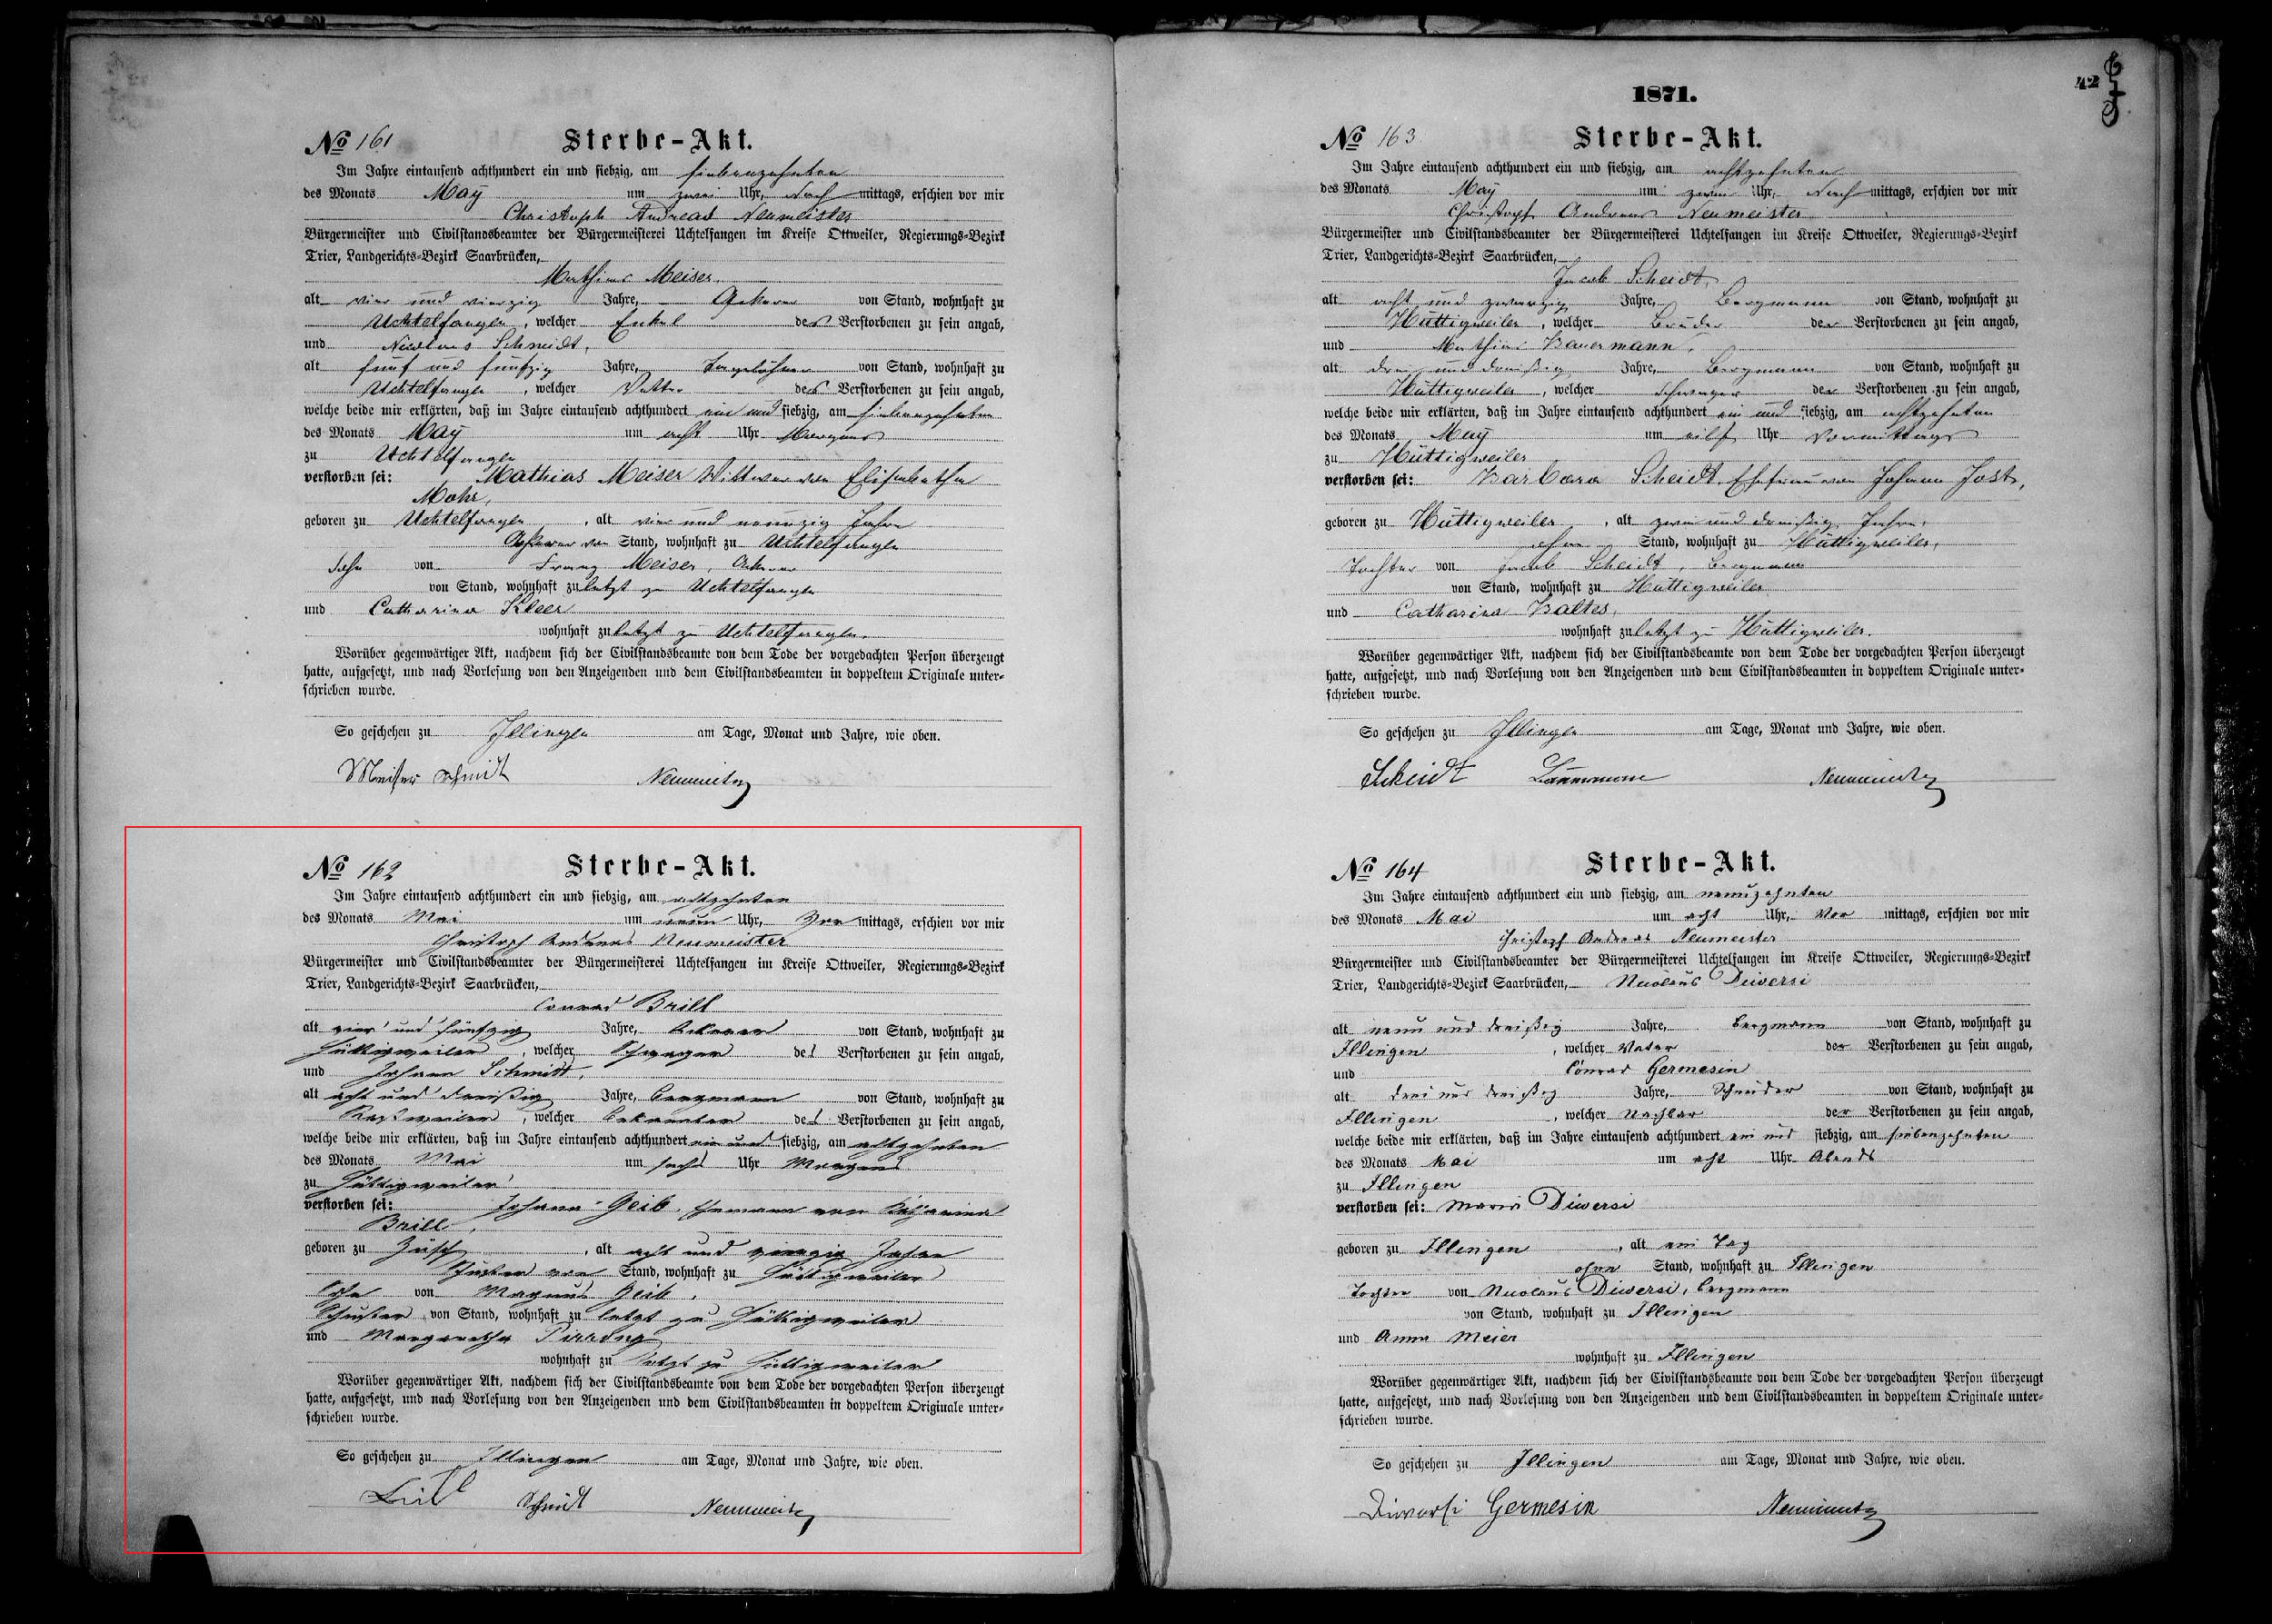 No 161 Sterbe-Akt.
Im Jahre eintausend achthundert ein und siebzig, am siebenzehnten
des Monats May um zwei Uhr, Nach mittags, erschien vor mir
Christoph Andreas Neumeister
Bürgermeister und Civilstandsbeamter der Bürgermeisterei Uchtelfangen im Kreise Ottweiler, Regierungs-Bezirk
Trier, Landgerichts-Bezirk Saarbrücken,
Mathias Meiser,
alt vier und vierzig Jahre, Ackerer von Stand, wohnhaft zu
Uchtelfangen, welcher Enkel des Verstorbenen zu sein angab,
und Nicolaus Schmidt,
alt fünf und fünfzig Jahre, Tagelöhner von Stand, wohnhaft zu
Uchtelfangen, welcher Vetter des Verstorbenen zu sein angab,
welche beide mir erklärten, daß im Jahre eintausend achthundert ein und siebzig, am siebenzehnten
des Monats May um acht Uhr Morgens
zu Uchtelfangen
verstorben sei: Mathias Meiser Wittwer von Elisabetha
Mohr,
geboren zu Uchtelfangen, alt vier und neunzig Jahre
Ackerer von Stand, wohnhaft zu Uchtelfangen
Sohn von Franz Meiser, Ackerer
von Stand, wohnhaft zuletzt zu Uchtelfangen
und Catharina Kleer
wohnhaft zuletzt zu Uchtelfangen.
Worüber gegenwärtiger Akt, nachdem sich der Civilstandsbeamte von dem Tode der vorgedachten Person überzeugt
hatte, aufgesetzt, und nach Vorlesung von den Anzeigenden und dem Civilstandsbeamten in doppeltem Originale unter-
schrieben wurde.
So geschehen zu Illingen am Tage, Monat und Jahre, wie oben.
Meiser Schmidt Neumeister
No 162 Sterbe-Akt.
Im Jahre eintausend achthundert ein und siebzig, am achtzehnten
des Monats Mai um neun Uhr, Vor mittags, erschien vor mir
Christoph Andreas Neumeister
Bürgermeister und Civilstandsbeamter der Bürgermeisterei Uchtelfangen im Kreise Ottweiler, Regierungs-Bezirk
Trier, Landgerichts-Bezirk Saarbrücken,
Conrad Brill
alt vier und fünfzig Jahre, Ackerer von Stand, wohnhaft zu
Hüttigweiler, welcher Schwager des Verstorbenen zu sein angab,
und Johann Schmidt,
alt acht und dreißig Jahre, Bergmann von Stand, wohnhaft zu
Raßweiler, welcher Bekannter des Verstorbenen zu sein angab,
welche beide mir erklärten, daß im Jahre eintausend achthundert ein und siebzig, am achtzehnten
des Monats Mai um sechs Uhr Morgens
zu Hüttigweiler
verstorben sei: Johann Geib, Ehemann von Katharina
Brill,
geboren zu Züsch, alt acht und vierzig Jahre
Schuster von Stand, wohnhaft zu Hüttigweiler
Sohn von Magnus Geib,
Schuster von Stand, wohnhaft zu letzt zu Hüttigweiler
und Margaretha Pirrong
wohnhaft zu letzt zu Hüttigweiler
Worüber gegenwärtiger Akt, nachdem sich der Civilstandsbeamte von dem Tode der vorgedachten Person überzeugt
hatte, aufgesetzt, und nach Vorlesung von den Anzeigenden und dem Civilstandsbeamten in doppeltem Originale unter-
schrieben wurde.
So geschehen zu Illingen am Tage, Monat und Jahre, wie oben.
Brill Schmidt Neumeister
1871.
42
No 163 Sterbe-Akt.
Im Jahre eintausend achthundert ein und siebzig, am achtzehnten
des Monats May um zwei Uhr, Nach mittags, erschien vor mir
Christoph Andreas Neumeister
Bürgermeister und Civilstandsbeamter der Bürgermeisterei Uchtelfangen im Kreise Ottweiler, Regierungs-Bezirk
Trier, Landgerichts-Bezirk Saarbrücken,
Jacob Scheidt,
alt acht und zwanzig Jahre, Bergmann von Stand, wohnhaft zu
Hüttigweiler, welcher Bruder der Verstorbenen zu sein angab,
und Mathias Bauermann,
alt drei und dreißig Jahre, Bergmann von Stand, wohnhaft zu
Hüttigweiler, welcher Schwager der Verstorbenen zu sein angab,
welche beide mir erklärten, daß im Jahre eintausend achthundert ein und siebzig, am achtzehnten
des Monats May um eilf Uhr Vormittags
zu Hüttigweiler
verstorben sei: Barbara Scheidt, Ehefrau von Johann Jost,
geboren zu Hüttigweiler, alt zwei und dreißig Jahre,
ohne Stand, wohnhaft zu Hüttigweiler,
Tochter von Jacob Scheidt, Bergmann
von Stand, wohnhaft zu Hüttigweiler
und Catharina Baltes,
wohnhaft zuletzt zu Hüttigweiler.
Worüber gegenwärtiger Akt, nachdem sich der Civilstandsbeamte von dem Tode der vorgedachten Person überzeugt
hatte, aufgesetzt, und nach Vorlesung von den Anzeigenden und dem Civilstandsbeamten in doppeltem Originale unter-
schrieben wurde.
So geschehen zu Illingen am Tage, Monat und Jahre, wie oben.
Scheidt Bauermann Neumeister
No 164 Sterbe-Akt.
Im Jahre eintausend achthundert ein und siebzig, am neunzehnten
des Monats Mai um acht Uhr, Vor mittags, erschien vor mir
Christoph Andreas Neumeister
Bürgermeister und Civilstandsbeamter der Bürgermeisterei Uchtelfangen im Kreise Ottweiler, Regierungs-Bezirk
Trier, Landgerichts-Bezirk Saarbrücken, Nicolaus Diwersi
alt neun und dreißig Jahre, Bergmann von Stand, wohnhaft zu
Illingen, welcher Vater der Verstorbenen zu sein angab,
und Conrad Germesin
alt drei und dreißig Jahre, Schneider von Stand, wohnhaft zu
Illingen, welcher Nachbar der Verstorbenen zu sein angab,
welche beide mir erklärten, daß im Jahre eintausend achthundert ein und siebzig, am siebenzehnten
des Monats Mai um acht Uhr Abends
zu Illingen
verstorben sei: Maria Diwersi
geboren zu Illingen, alt ein Tag
ohne Stand, wohnhaft zu Illingen
Tochter von Nicolaus Diwersi, Bergmann
von Stand, wohnhaft zu Illingen
und Anna Meier
wohnhaft zu Illingen
Worüber gegenwärtiger Akt, nachdem sich der Civilstandsbeamte von dem Tode der vorgedachten Person überzeugt
hatte, aufgesetzt, und nach Vorlesung von den Anzeigenden und dem Civilstandsbeamten in doppeltem Originale unter-
schrieben wurde.
So geschehen zu Illingen am Tage, Monat und Jahre, wie oben.
Diwersi Germesin Neumeister